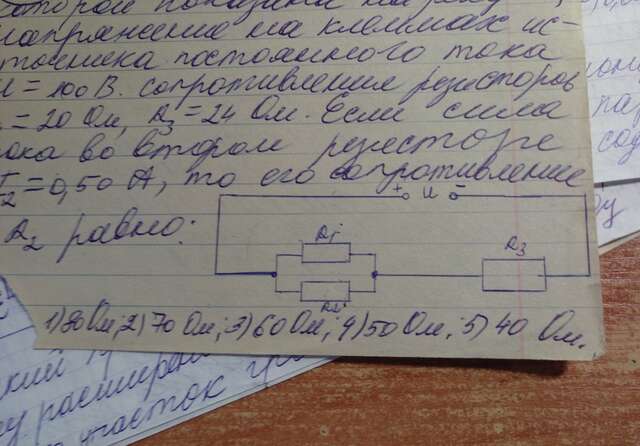 напряжение на клеммах ис-
точника постоянного тока
U = 100 В. сопротивления резисторов
= 20 Ом, R₃ = 24 Ом. Если сила
тока во втором резисторе
I₂ = 0,50 А, то его сопротивление
R₂ равно:
+ U −
R₁
R₃
R₂
1) 80 Ом; 2) 70 Ом; 3) 60 Ом; 4) 50 Ом; 5) 40 Ом.